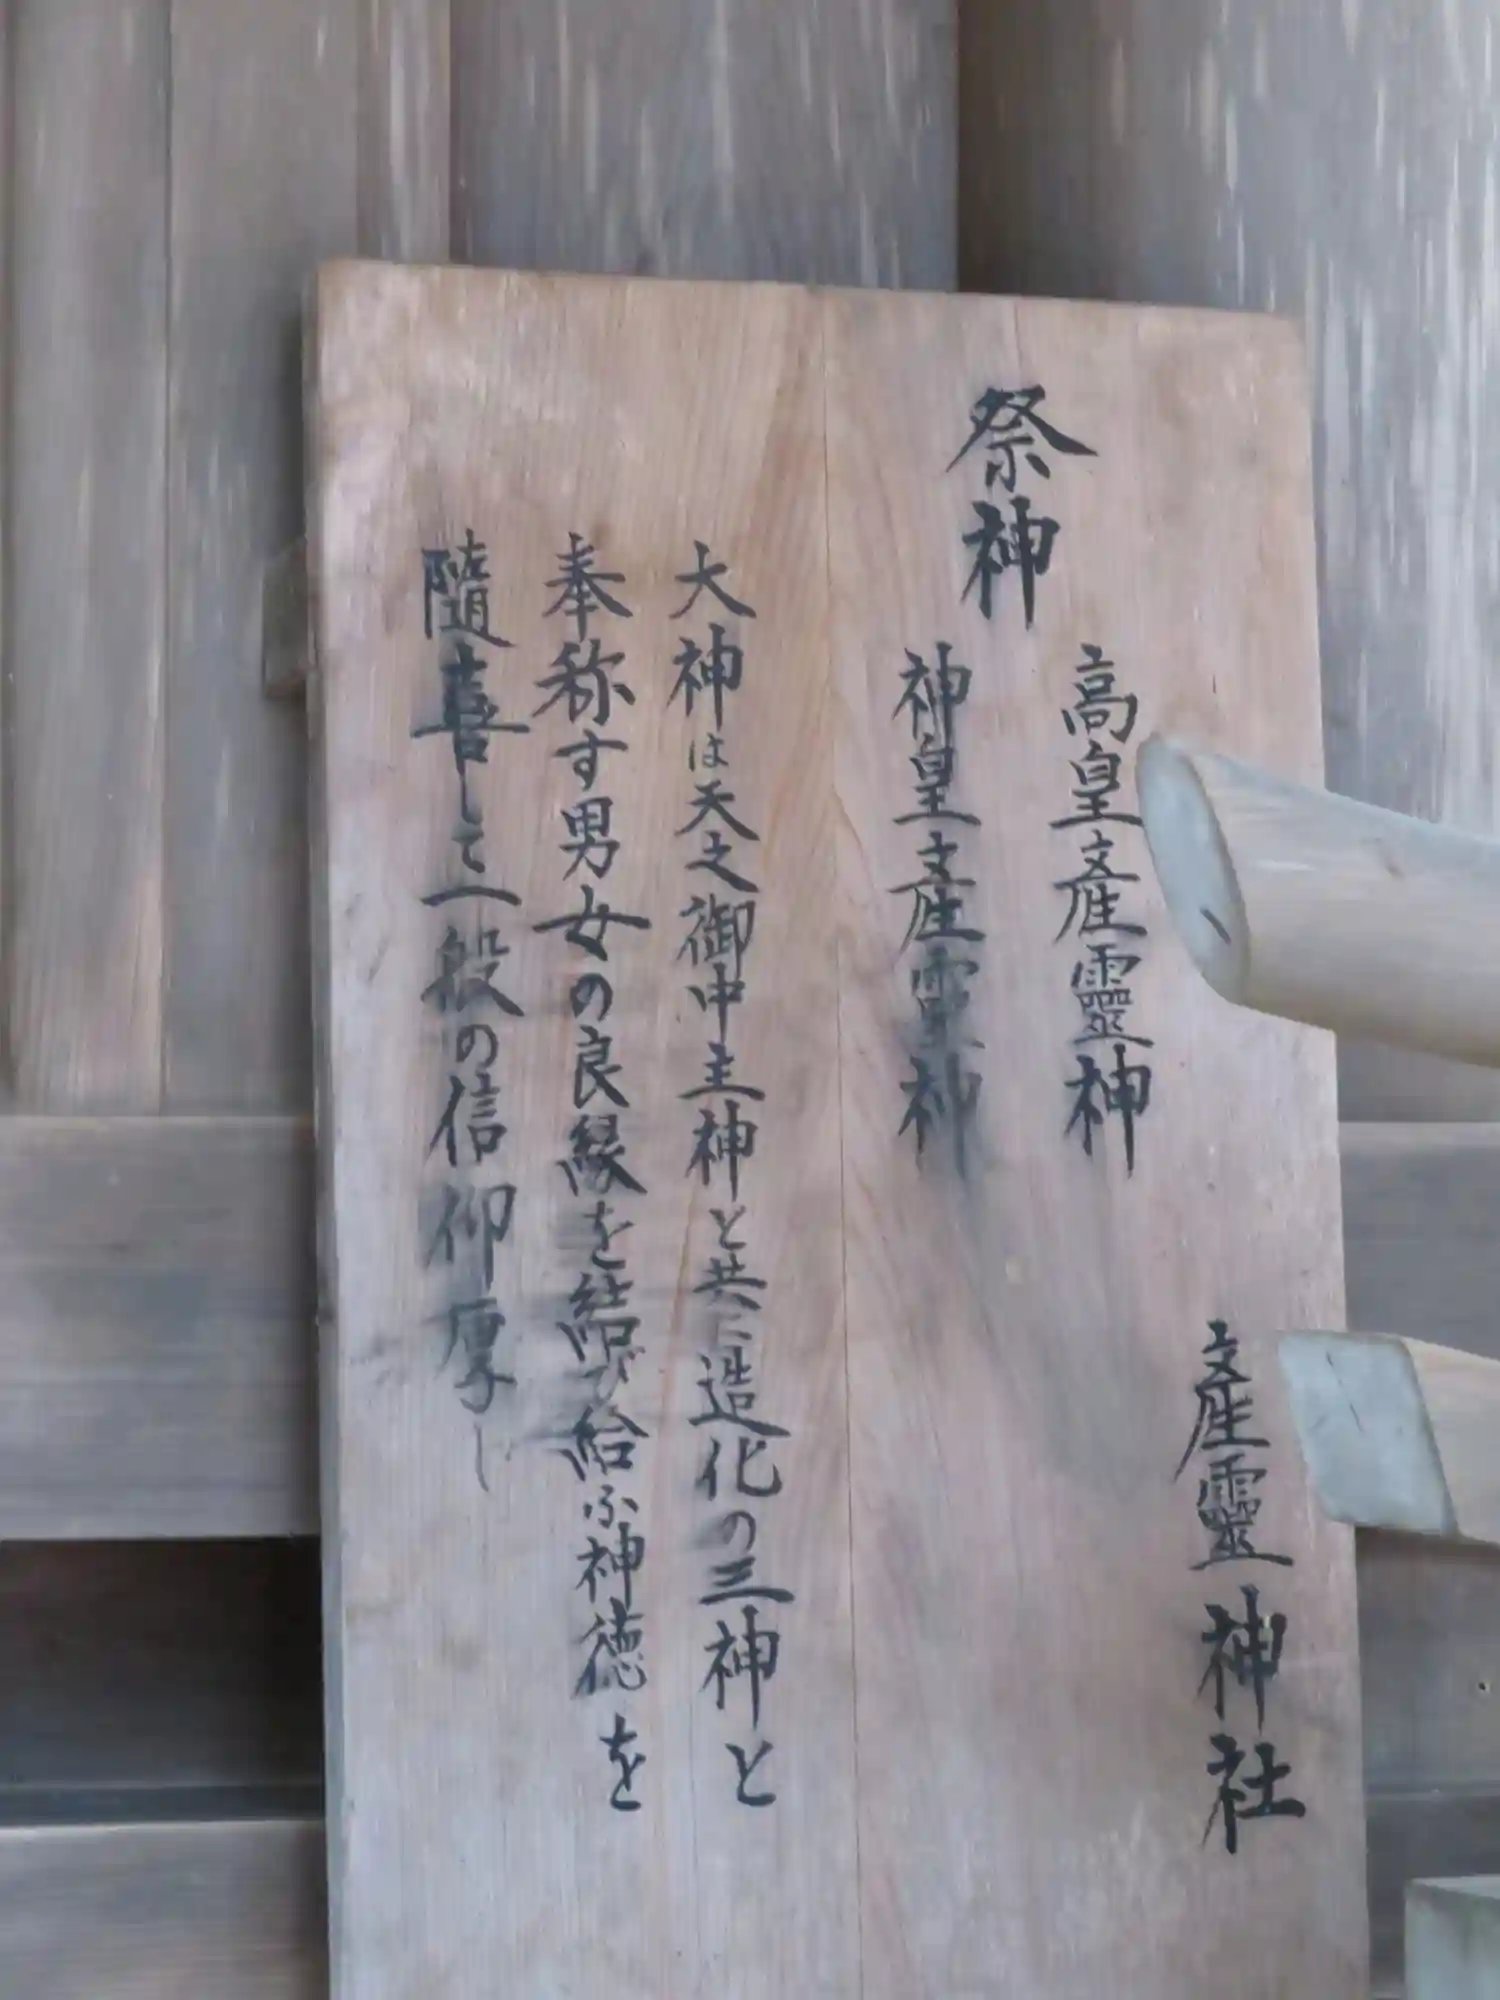 產靈神社
祭神
高皇產靈神
神皇產靈神
大神は天之御中主神と共に造化の三神と
奉称す男女の良縁を結び給ふ神徳を
隨喜して一般の信仰厚し